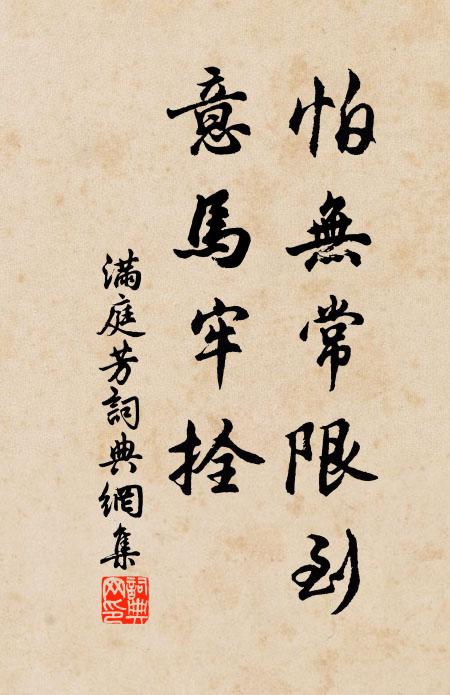 怕無常限到
意馬牢拴
滿庭芳詞典網集
詞典网印